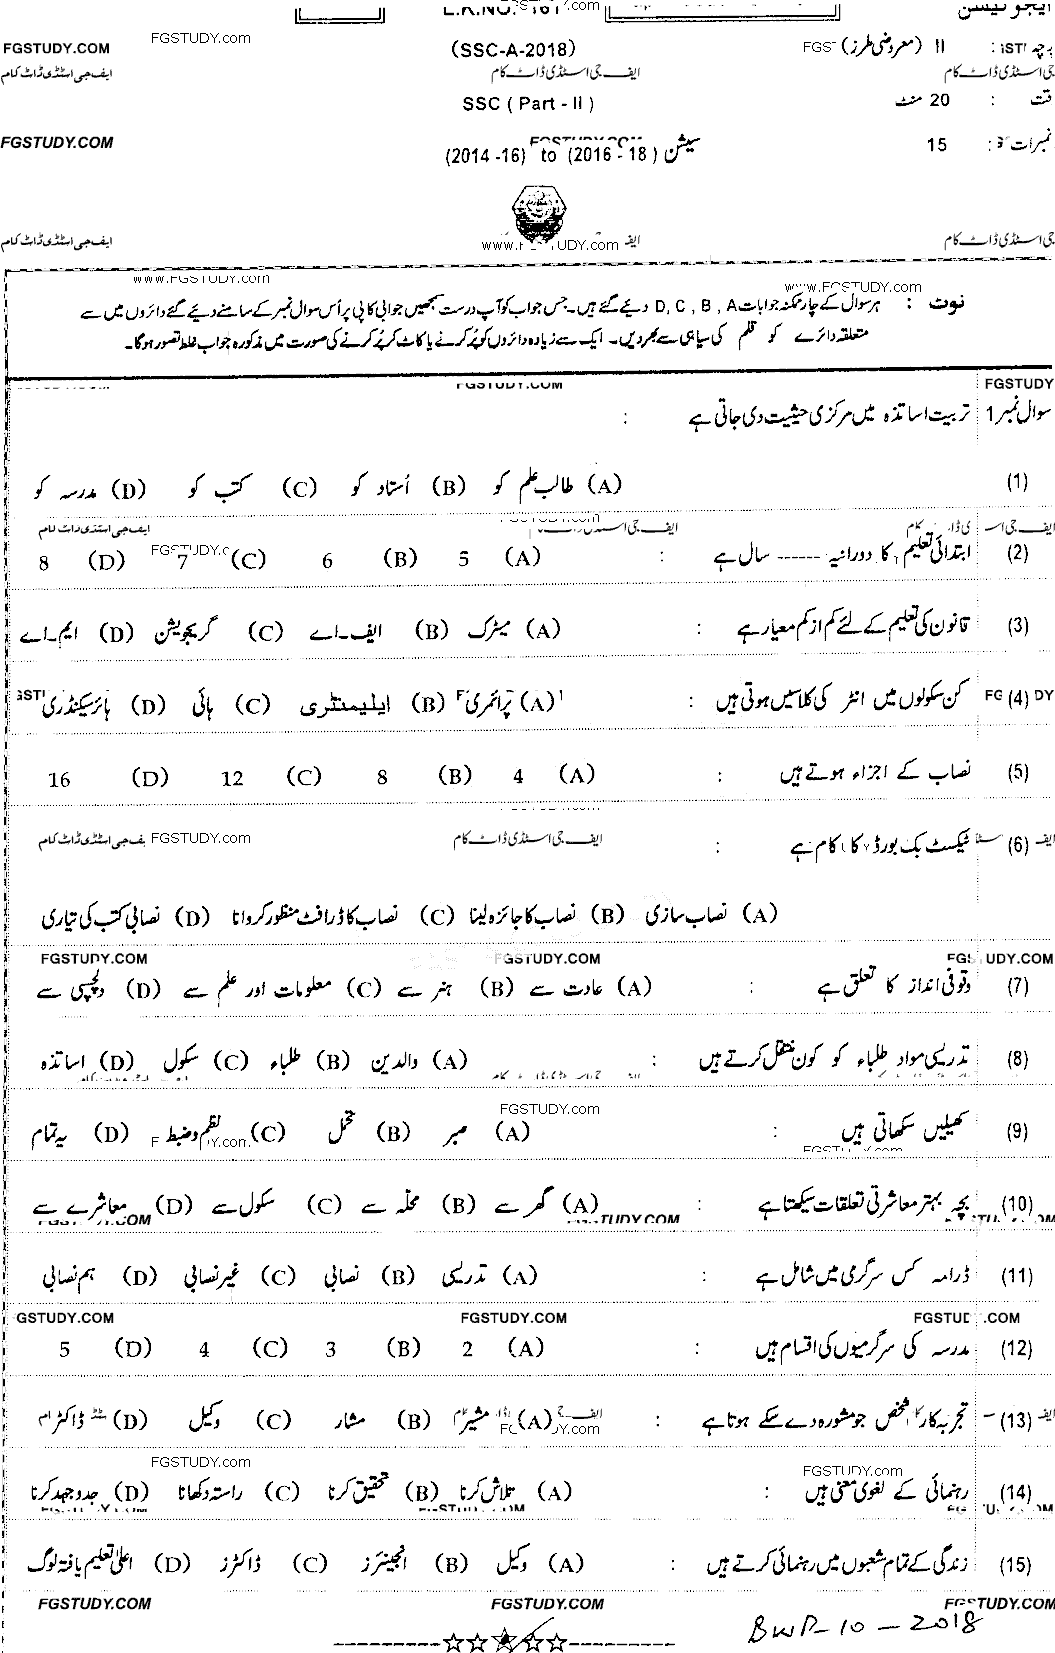 ایجوکیشن
L.K.NO. 1161 .com
FGSTUDY.COM FGSTUDY.com (SSC-A-2018) پرچہ II (معروضی طرز) :
ایف جی اسٹڈی ڈاٹ کام ایف جی اسٹڈی ڈاٹ کام جی اسٹڈی ڈاٹ کام
SSC ( Part - II ) وقت : 20 منٹ
FGSTUDY.COM سیشن (2014 -16) to (2016 - 18 ) نمبرات : 15
ایف جی اسٹڈی ڈاٹ کام www.FGSTUDY.com جی اسٹڈی ڈاٹ کام
www.FGSTUDY.com www.FGSTUDY.com
نوٹ : ہر سوال کے چار ممکنہ جوابات D, C , B , A دیئے گئے ہیں۔ جس جواب کو آپ درست سمجھیں جوابی کاپی پر اُس سوال نمبر کے سامنے دیئے گئے دائروں میں سے
متعلقہ دائرے کو قلم کی سیاہی سے بھر دیں۔ ایک سے زیادہ دائروں کو پُر کرنے یا کاٹ کر پُر کرنے کی صورت میں مذکورہ جواب غلط تصور ہو گا۔
FGSTUDY.COM FGSTUDY
سوال نمبر 1 تربیت اساتذہ میں مرکزی حیثیت دی جاتی ہے :
(1) (A) طالب علم کو (B) اُستاد کو (C) کتب کو (D) مدرسہ کو
(2) ابتدائی تعلیم کا دورانیہ ------ سال ہے : (A) 5 (B) 6 (C) 7 (D) 8
(3) قانون کی تعلیم کے لئے کم از کم معیار ہے : (A) میٹرک (B) ایف۔اے (C) گریجویشن (D) ایم۔اے
(4) کن سکولوں میں انٹر کی کلاسیں ہوتی ہیں : (A) پرائمری (B) ایلیمنٹری (C) ہائی (D) ہائر سیکنڈری
(5) نصاب کے اجزاء ہوتے ہیں : (A) 4 (B) 8 (C) 12 (D) 16
(6) ٹیکسٹ بک بورڈ کا کام ہے :
FGSTUDY.com ایف جی اسٹڈی ڈاٹ کام
(A) نصاب سازی (B) نصاب کا جائزہ لینا (C) نصاب کا ڈرافٹ منظور کروانا (D) نصابی کتب کی تیاری
FGSTUDY.COM FGSTUDY.COM FGSTUDY.COM
(7) وقوفی انداز کا تعلق ہے : (A) عادت سے (B) ہنر سے (C) معلومات اور علم سے (D) دلچسپی سے
(8) تدریسی مواد طلباء کو کون منتقل کرتے ہیں : (A) والدین (B) طلباء (C) سکول (D) اساتذہ
FGSTUDY.com
(9) کھیلیں سکھاتی ہیں : (A) صبر (B) تحمل (C) نظم و ضبط (D) یہ تمام
(10) بچہ بہتر معاشرتی تعلقات سیکھتا ہے : (A) گھر سے (B) محلہ سے (C) سکول سے (D) معاشرے سے
(11) ڈرامہ کس سرگرمی میں شامل ہے : (A) تدریسی (B) نصابی (C) غیر نصابی (D) ہم نصابی
GSTUDY.COM FGSTUDY.COM FGSTUDY.COM
(12) مدرسہ کی سرگرمیوں کی اقسام ہیں : (A) 2 (B) 3 (C) 4 (D) 5
(13) تجربہ کار شخص جو مشورہ دے سکے ہوتا ہے : (A) مشیر (B) مشار (C) وکیل (D) ڈاکٹر
FGSTUDY.com FGSTUDY.com
(14) رہنمائی کے لغوی معنی ہیں : (A) تلاش کرنا (B) تحقیق کرنا (C) راستہ دکھانا (D) جدوجہد کرنا
(15) زندگی کے تمام شعبوں میں رہنمائی کرتے ہیں : (A) وکیل (B) انجینئرز (C) ڈاکٹرز (D) اعلیٰ تعلیم یافتہ لوگ
FGSTUDY.COM FGSTUDY.COM FGSTUDY.COM
BWP-10-2018